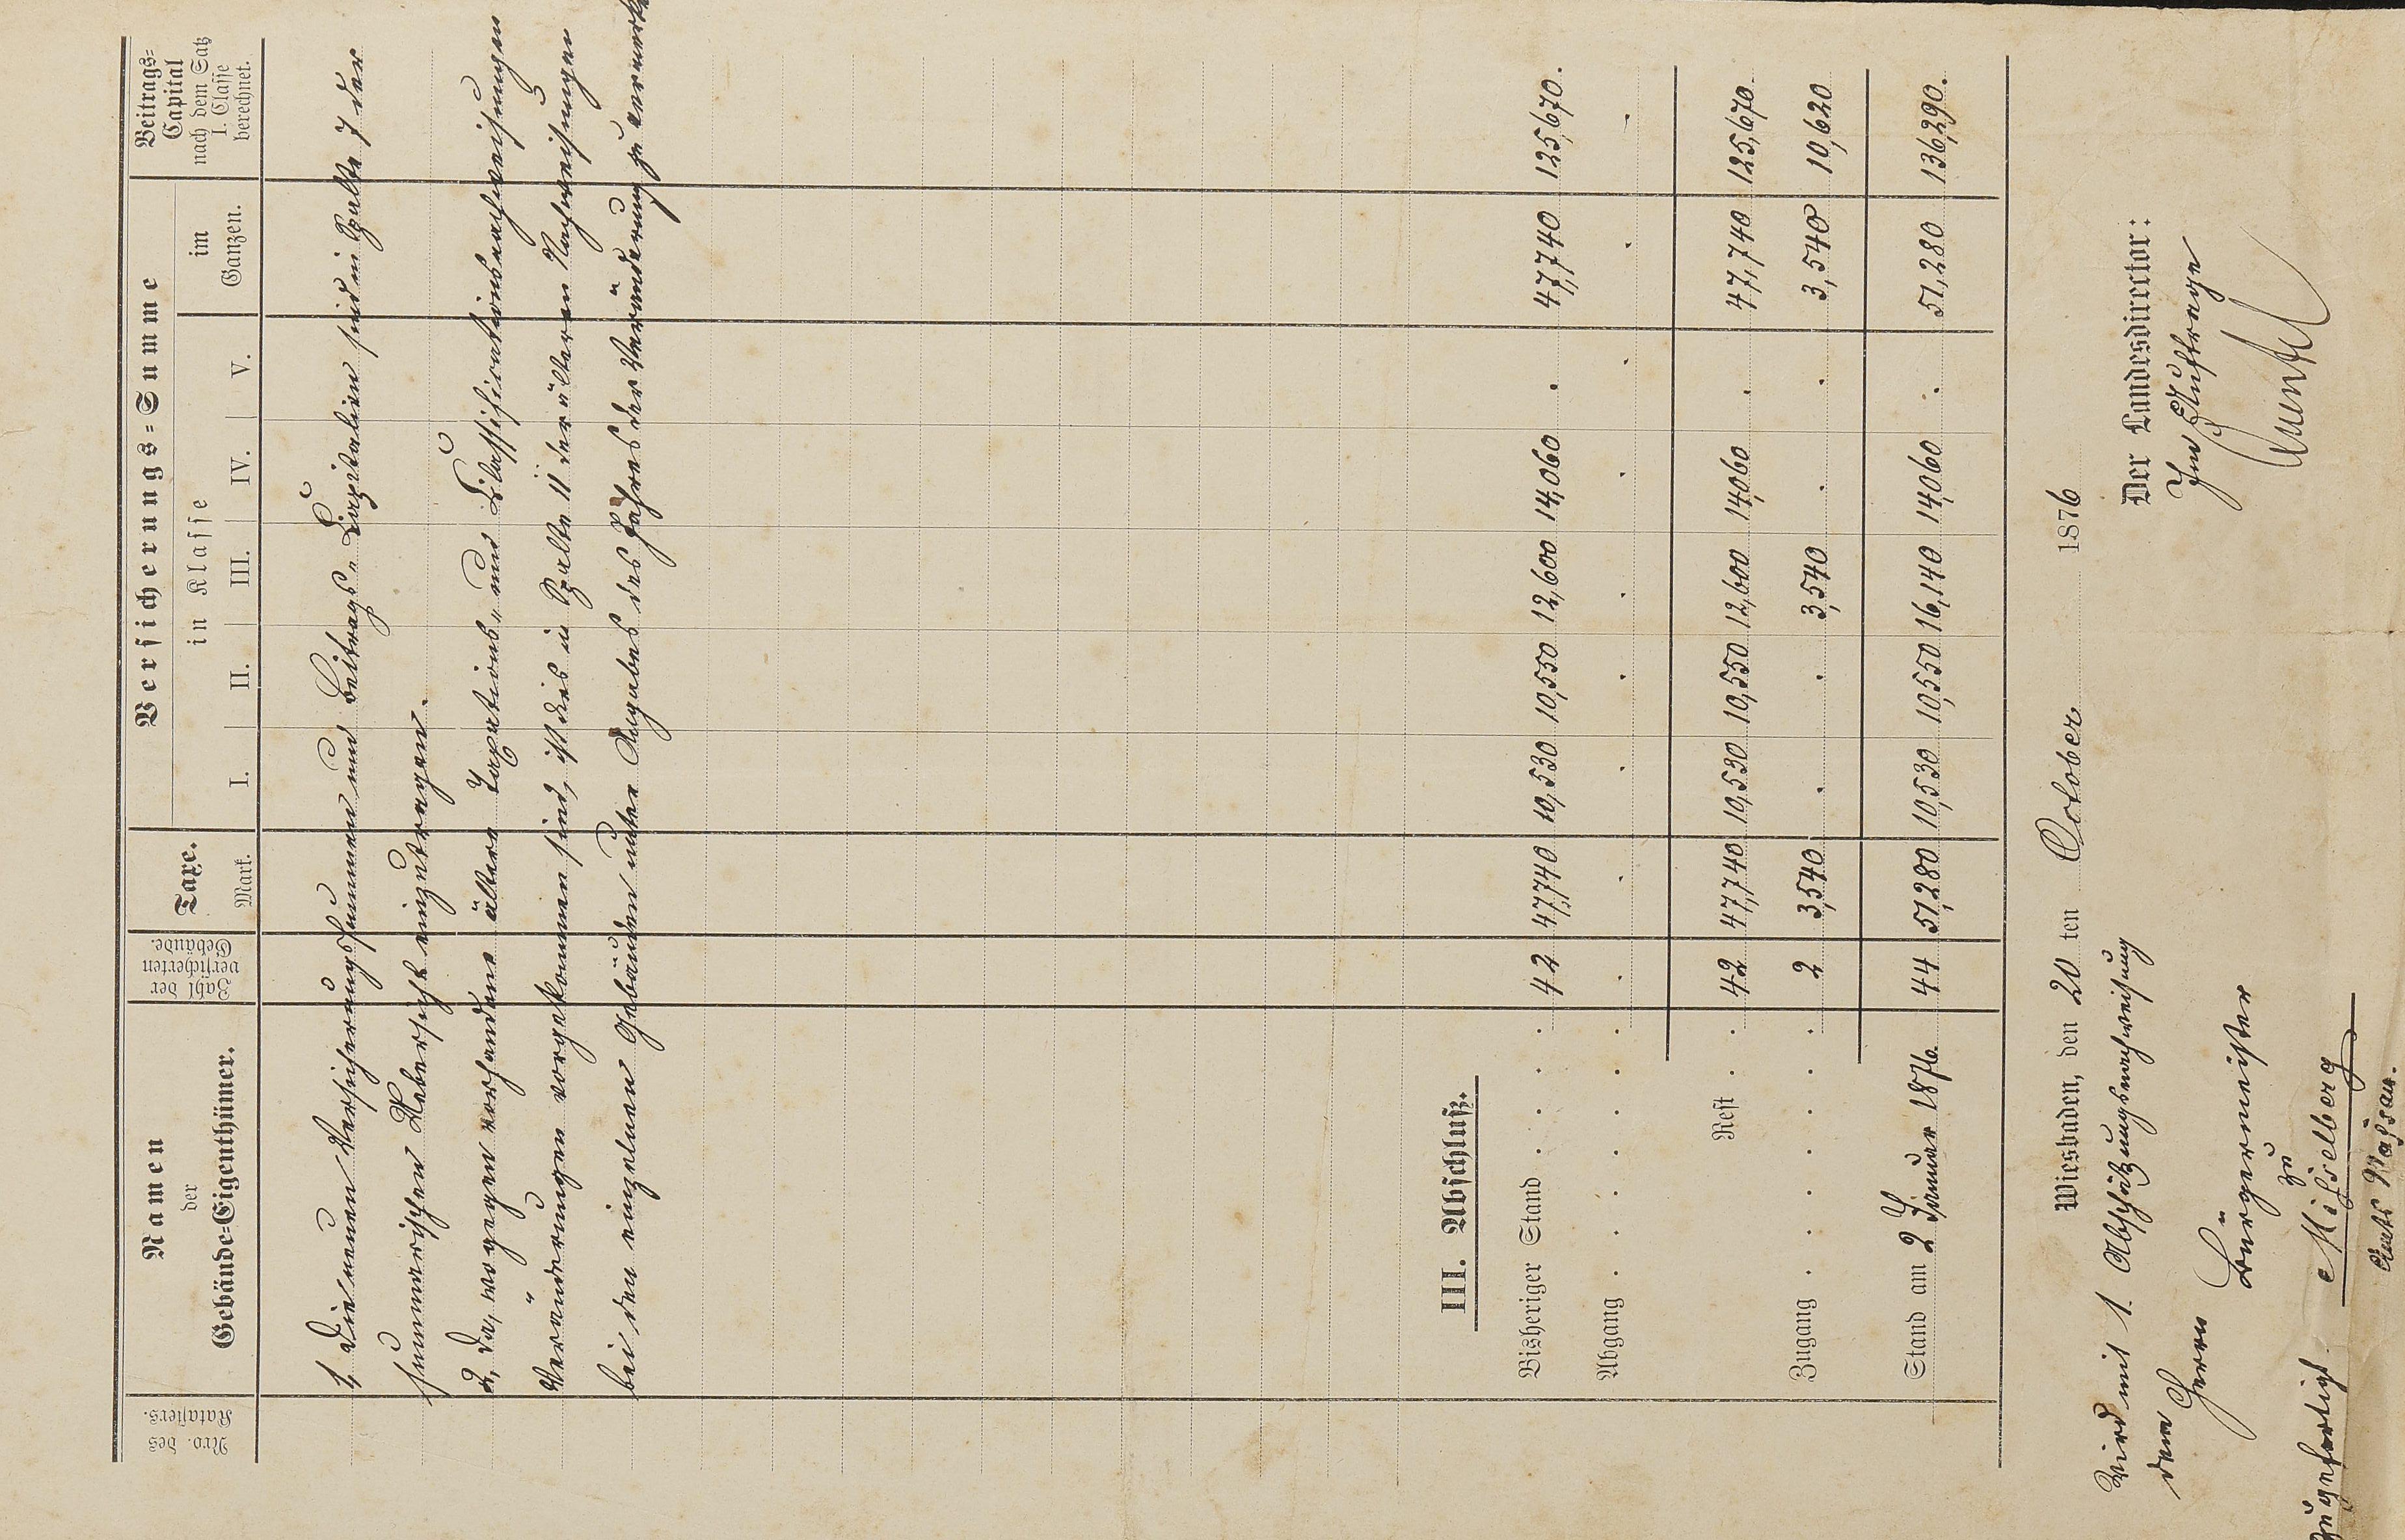 Nro. des Katasters.
Namen der Gebäude=Eigenthümer.
Zahl der versicherten Gebäude.
Taxe. Mark.
Versicherungs=Summe
in Klasse
I. II. III. IV. V.
im Ganzen.
Beitrags=Capital nach dem Satz I. Classe berechnet.
1, Die neuen Versicherungssummen und Beitrags-Capitalien sind in Spalte 7 der
summarischen Uebersicht einzutragen.
2, Da, wogegen vorhandene ältere Taxations- und Classificationsnachweisungen
Veränderungen vorgekommen sind, ist dies in Spalte 11 der älteren Nachweisungen
bei den einzelnen Gebäuden unter Angabe des Jahres der Veränderung zu
III. Abschluß.
Bisheriger Stand . . . . 42 47,740 10,530 10,550 12,600 14,060 . 47,740 125,670.
Abgang . . . . . . . . . . . . . .
Rest . . 42 47,740 10,530 10,550 12,600 14,060 . 47,740 125,670.
Zugang . . . . . 2 3,540 . . 3,540 . . 3,540 10,620
Stand am 2 Januar 1876. 44 51,280 10,530 10,550 16,140 14,060 . 51,280 136,290.
Wiesbaden, den 20 ten October 1876
Wird mit 1. Abschätzungsnachweisung
dem Herrn
Bürgermeister
zu
Misselberg
Amts Nassau.
Der Landesdirector:
Im Auftrage